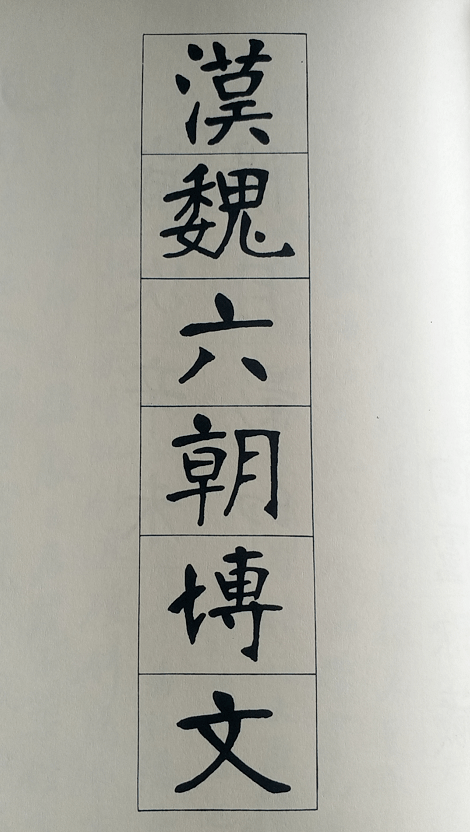 漢魏六朝塼文